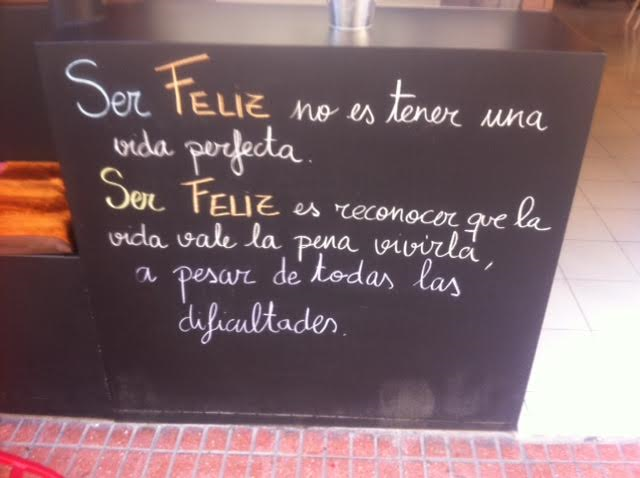 Ser FELIZ no es tener una
vida perfecta.
Ser FELIZ es reconocer que la
vida vale la pena vivirla,
a pesar de todas las
dificultades.